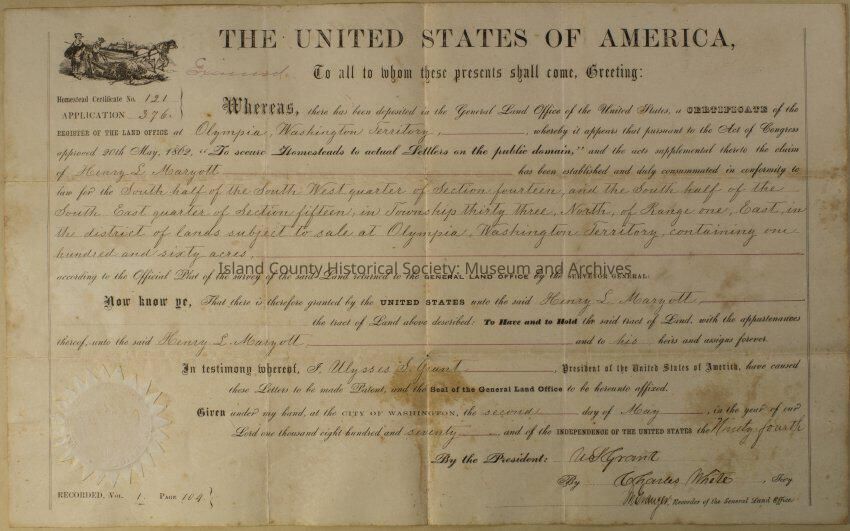 THE UNITED STATES OF AMERICA,
To all to whom these presents shall come, Greeting:
Homestead Certificate No. 121
APPLICATION 376
Whereas, there has been deposited in the General Land Office of the United States, a CERTIFICATE of the
REGISTER OF THE LAND OFFICE at Olympia, Washington Territory, , whereby it appears that pursuant to the Act of Congress
approved 20th May, 1862, "To secure Homesteads to actual Settlers on the public domain," and the acts supplemental thereto the claim
of Henry L. Maryott has been established and duly consummated in conformity to
law for the South half of the South West quarter of Section fourteen, and the South half of the
South East quarter of Section fifteen, in Township thirty three, North, of Range one, East, in
the district of lands subject to sale at Olympia, Washington Territory, containing one
hundred and sixty acres,
according to the Official Plat of the survey of the said Land returned to the GENERAL LAND OFFICE by the SURVEYOR GENERAL:
Island County Historical Society: Museum and Archives
Now know ye, That there is therefore granted by the UNITED STATES unto the said Henry L. Maryott
the tract of Land above described: To Have and to Hold the said tract of Land, with the appurtenances
thereof, unto the said Henry L. Maryott and to his heirs and assigns forever.
In testimony whereof, I, Ulysses S. Grant , President of the United States of America, have caused
these Letters to be made Patent, and the Seal of the General Land Office to be hereunto affixed.
Given under my hand, at the CITY OF WASHINGTON, the second day of May , in the year of our
Lord one thousand eight hundred and seventy , and of the INDEPENDENCE OF THE UNITED STATES the Ninety fourth
By the President: U.S. Grant
By Charles White , Secy
Recorder of the General Land Office.
RECORDED, Vol. 1. PAGE 104.